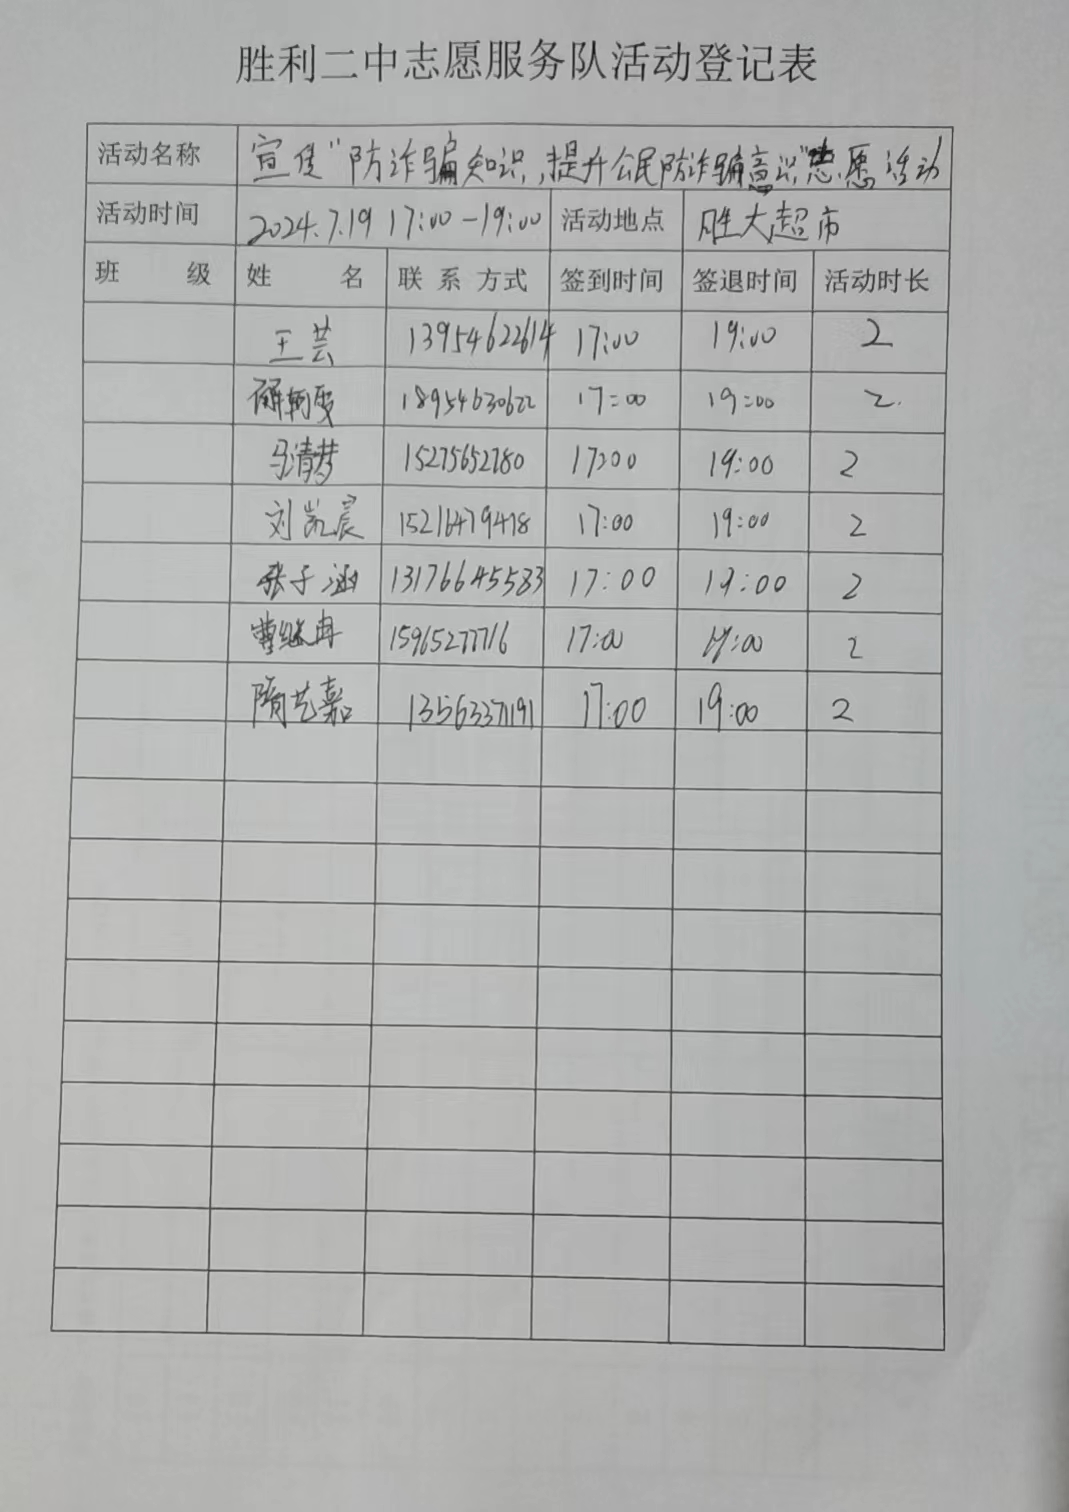 胜利二中志愿服务队活动登记表
活动名称 宣传"防诈骗知识,提升公民防诈骗意识"志愿活动
活动时间 2024.7.19 17:00-19:00 活动地点 胜大超市
班 级 姓 名 联 系 方式 签到时间 签退时间 活动时长
王芸 13954622614 17:00 19:00 2
18954630622 17:00 19:00 2
马清梦 15275652780 17:00 19:00 2
刘凯晨 15216479418 17:00 19:00 2
张子涵 13176645583 17:00 19:00 2
曹继冉 15965277716 17:00 19:00 2
隋艺嘉 13563371191 17:00 19:00 2